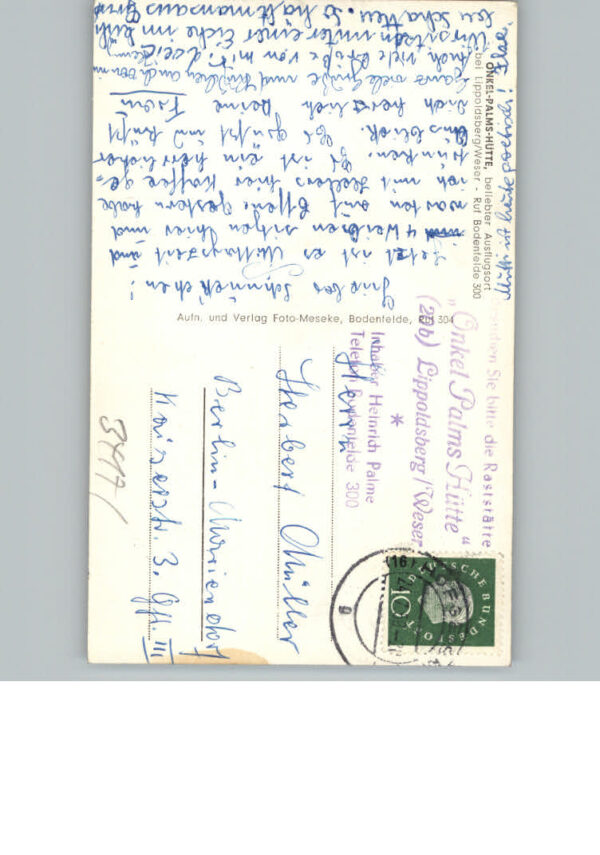 ONKEL-PALMS-HÜTTE, beliebter Ausflugsort
bei Lippoldsberg/Weser - Ruf Bodenfelde 300
Schnuckchen!
Jetzt ist es Mittagszeit und
4 Weibsen sitzen hier und
warten auf Essen. Gestern habe
ich mit Hellers hier Kaffee ge-
trunken. Es ist ein herrlicher
Ausblick. Es grüßt und küßt
Dich herzlich Deine Frau
Ganz viele Grüße und Küßchen auch von mir
Auch viele Grüße von mir.
Wir sitzen unter einer Eiche im küh-
len Schatten.
Mutti ist heute poetisch! Ilse.
Aufn. und Verlag Foto-Meseke, Bodenfelde, Ruf 304
Sie bitte die Raststätte
„Onkel Palms Hütte“
(20b) Lippoldsberg/Weser
*
Inhaber Heinrich Palme
Telefon Bodenfelde 300
DEUTSCHE BUNDESPOST
10
(16)
Herrn
Herbert Müller
Berlin-Mariendorf
Kaiserstr. 3. Gfl. III